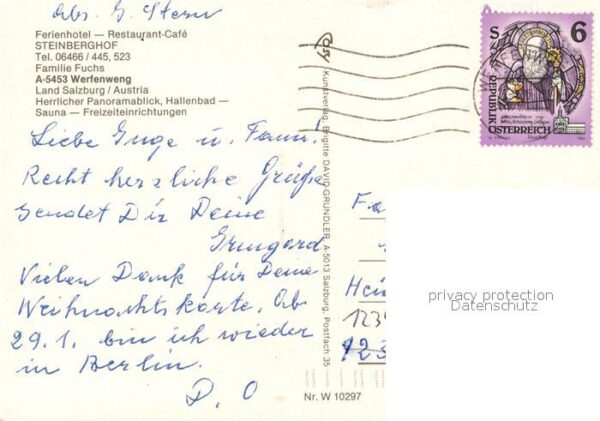 Abs. G. Stern
Ferienhotel — Restaurant-Café
STEINBERGHOF
Tel. 06466 / 445, 523
Familie Fuchs
A-5453 Werfenweng
Land Salzburg / Austria
Herrlicher Panoramablick, Hallenbad —
Sauna — Freizeiteinrichtungen
Liebe Inge u. Fam.!
Recht herzliche Grüße
sendet Dir Deine
Irmgard
Vielen Dank für Deine
Weihnachtskarte. Ab
29.1. bin ich wieder
in Berlin.
D. O
Cosy
Kunstverlag, Brigitte DAVID-GRÜNDLER, A-5013 Salzburg, Postfach 35
Nr. W 10297
S 6
REPUBLIK
ÖSTERREICH
Fa
Hein
123
privacy protection
Datenschutz